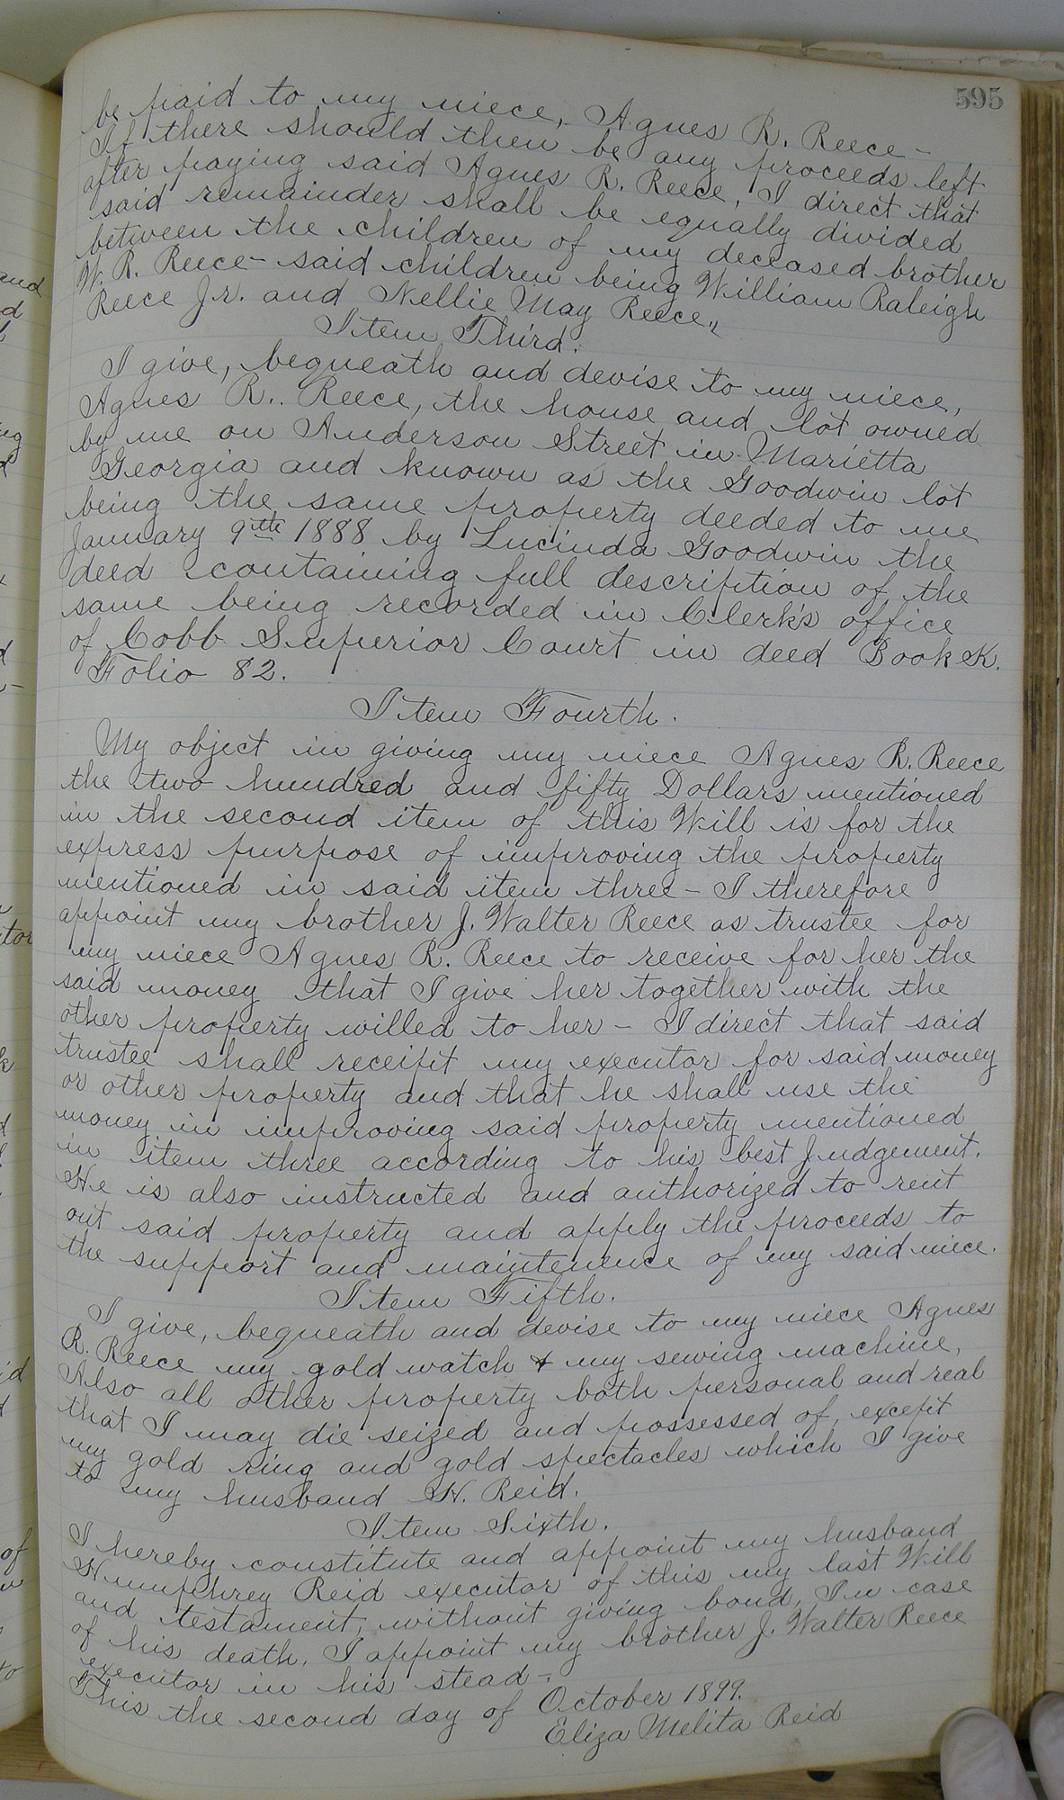 595
be paid to my niece, Agnes R. Reece -
If there should then be any proceeds left
after paying said Agnes R. Reece, I direct that
said remainder shall be equally divided
between the children of my deceased brother
W. R. Reece - said children being William Raleigh
Reece Jr. and Nellie May Reece.,
Item Third.
I give, bequeath and devise to my niece,
Agnes R. Reece, the house and lot owned
by me on Anderson Street in Marietta
Georgia and known as the Goodwin lot
being the same property deeded to me
January 9th 1888 by Lucinda Goodwin the
deed containing full description of the
same being recorded in Clerk's office
of Cobb Superior Court in deed Book K.
Folio 82.
Item Fourth.
My object in giving my niece Agnes R. Reece
the two hundred and fifty Dollars mentioned
in the second item of this Will is for the
express purpose of improving the property
mentioned in said item three - I therefore
appoint my brother J. Walter Reece as trustee for
my niece Agnes R. Reece to receive for her the
said money that I give her together with the
other property willed to her - I direct that said
trustee shall receipt my executor for said money
or other property and that he shall use the
money in improving said property mentioned
in item three according to his best Judgement.
He is also instructed and authorized to rent
out said property and apply the proceeds to
the support and maintenence of my said niece.
Item Fifth.
I give, bequeath and devise to my niece Agnes
R. Reece my gold watch & my sewing machine,
Also all other property both personal and real
that I may die seized and possessed of, except
my gold ring and gold spectacles which I give
to my husband H. Reid.
Item Sixth.
I hereby constitute and appoint my husband
Humphrey Reid executor of this my last Will
and testament, without giving bond, In case
of his death, I appoint my brother J. Walter Reece
executor in his stead -
This the second day of October 1899.
Eliza Melita Reid